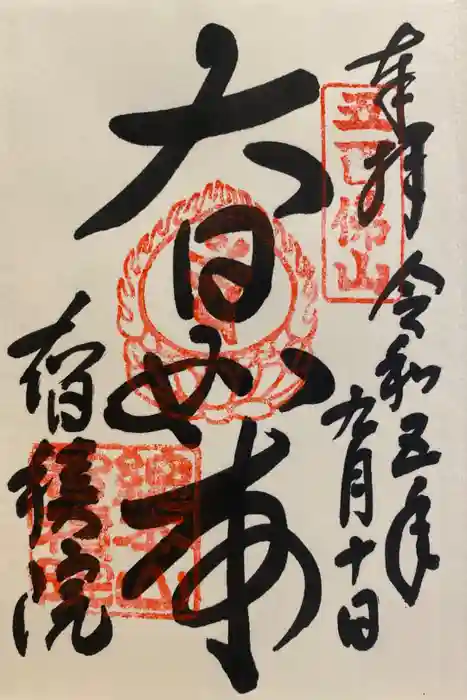 奉拝 令和五年
九月十日
五百佛山
大日如来
智積院